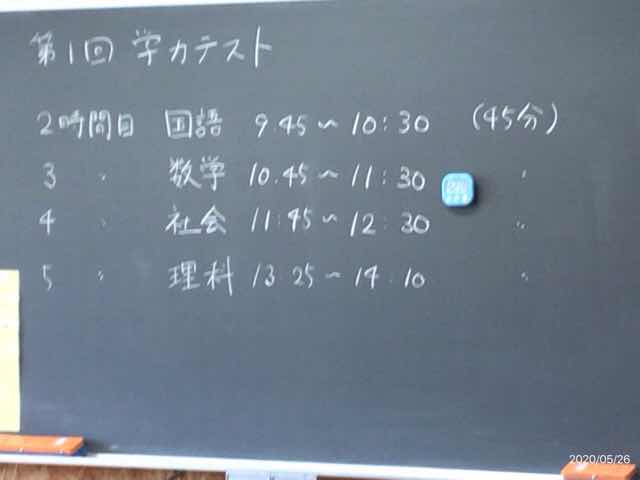 第1回 学力テスト
2時間目 国語 9.45〜10:30 (45分)
3 〃 数学 10.45〜11:30 〃
4 〃 社会 11:45〜12:30 〃
5 〃 理科 13.25〜14.10 〃
2020/05/26